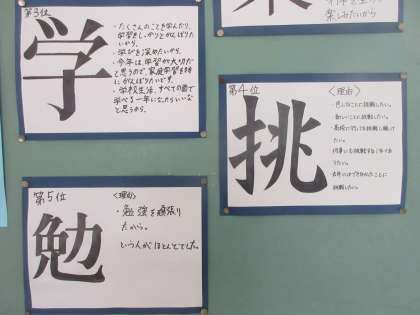 第3位
学
・たくさんのことを学んだり、
学習をしっかりとがんばりた
いから。
・学びを深めたいから。
・今年は、学習が大切だ
と思うので、家庭学習を特
にがんばりたいです。
・学校生活、すべての面で
学べる一年になったらいいな
と思うから。
楽しみたいから
第4位
〈理由〉
挑
・色んなことに挑戦したい。
・新しいことに挑戦したい。
何事にも挑戦する
りたい。
挑戦したい。
第5位
〈理由〉
勉
・勉強を頑張り
たから。
という人がほとんどでした。